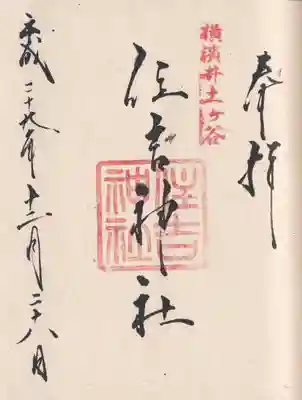 奉拝
横濱井土ヶ谷
住吉神社
住吉神社
平成二十九年十二月二十八日